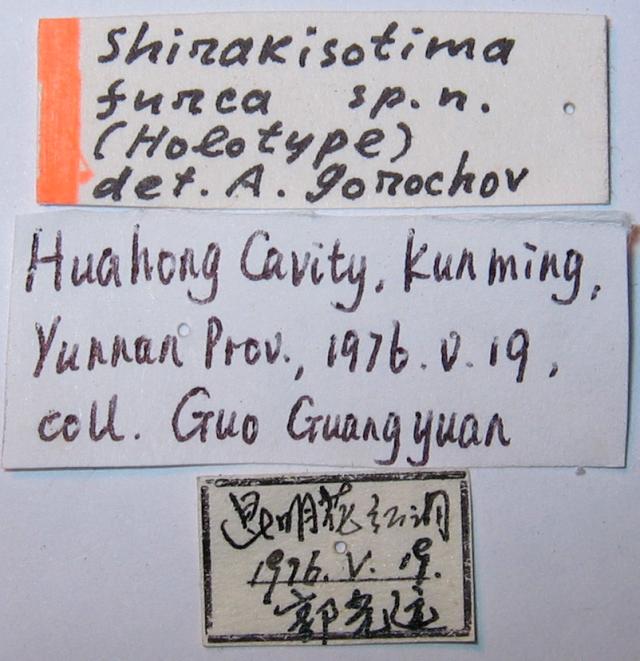 Shirakisotima
furca sp. n.
(Holotype)
det. A. Gorochov
Huahong Cavity, Kunming,
Yunnan Prov., 1976. V. 19,
coll. Guo Guangyuan
昆明花红洞
1976. V. 19.
郭光远